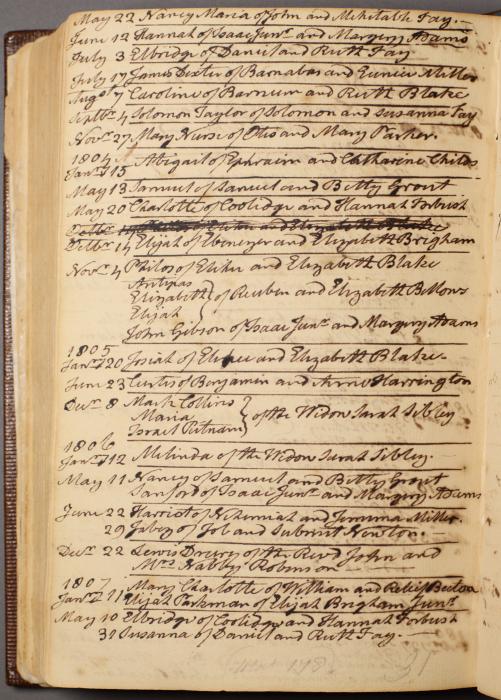 May 22 Nancy Maria of John and Mehitable Fay.
June 12 Hannah of Isaac Junr. and Margery Adams
July 3 Elbridge of Daniel and Ruth Fay
July 17 James Dexter of Barnabas and Eunice Miller
Augt. 7 Caroline of Barnum and Ruth Blake
Septbr. 4 Solomon Taylor of Solomon and Susanna Fay
Novr. 27 Mary Nurse of Otis and Mary Parker.
1804
Janr. 15 Abigail of Ephraim and Catharine Childs
May 13 Samuel of Samuel and Betty Grout
May 20 Charlotte of Coolidge and Hannah Forbush
Octbr. 14 Elijah of Ebenezer and Elizabeth Brigham
Novr. 4 Philos of Elihu and Elizabeth Blake
Antipas
Elizabeth } of Reuben and Elizabeth Bellows
Elijah
John Gibson of Isaac Junr. and Margery Adams
1805
Janry 20 Josiah of Elihu and Elizabeth Blake
June 23 Curtis of Benjamin and Harrington
Decr. 8 Mark Collins
Maria } of the Widow Sarah Sibley
Israel Putnam
1806
Janry 12 Melinda of the Widow Sarah Sibley.
May 11 Nancy of Samuel and Betty Grout
Sanford of Isaac Junr. and Margery Adams
June 22 Harriot of Nehemiah and Jemima Miller.
29 Jabez of Job and Submit Newton.
Decr. 22 Lewis Drewry of the Revd John and
Mrs. Nabby Robinson
1807
Janry 11 Mary Charlotte of William and Relief Beeton
Elijah Parkman of Elijah Brigham Junr.
May 10 Elbridge of Coolidge and Hannah Forbush
31 Susanna of Daniel and Ruth Fay.